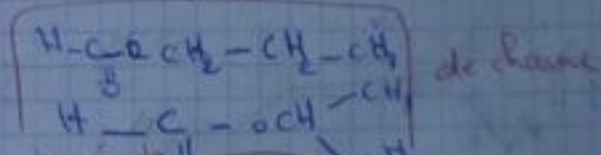 H-C-O CH2-CH2-CH3 de chaine
O
H-C-OCH-CH3